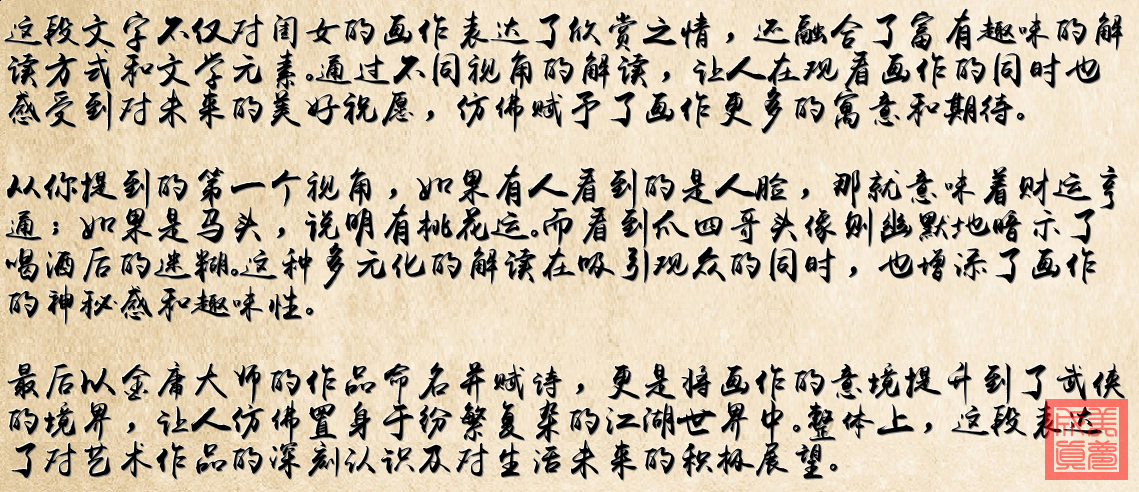 这段文字不仅对闺女的画作表达了欣赏之情，还融合了富有趣味的解
读方式和文学元素。通过不同视角的解读，让人在观看画作的同时也
感受到对未来的美好祝愿，仿佛赋予了画作更多的寓意和期待。
从你提到的第一个视角，如果有人看到的是人脸，那就意味着财运亨
通；如果是马头，说明有桃花运。而看到爪四哥头像则幽默地暗示了
喝酒后的迷糊。这种多元化的解读在吸引观众的同时，也增添了画作
的神秘感和趣味性。
最后以金庸大师的作品命名并赋诗，更是将画作的意境提升到了武侠
的境界，让人仿佛置身于纷繁复杂的江湖世界中。整体上，这段表达
了对艺术作品的深刻认识及对生活未来的积极展望。
美梦成真